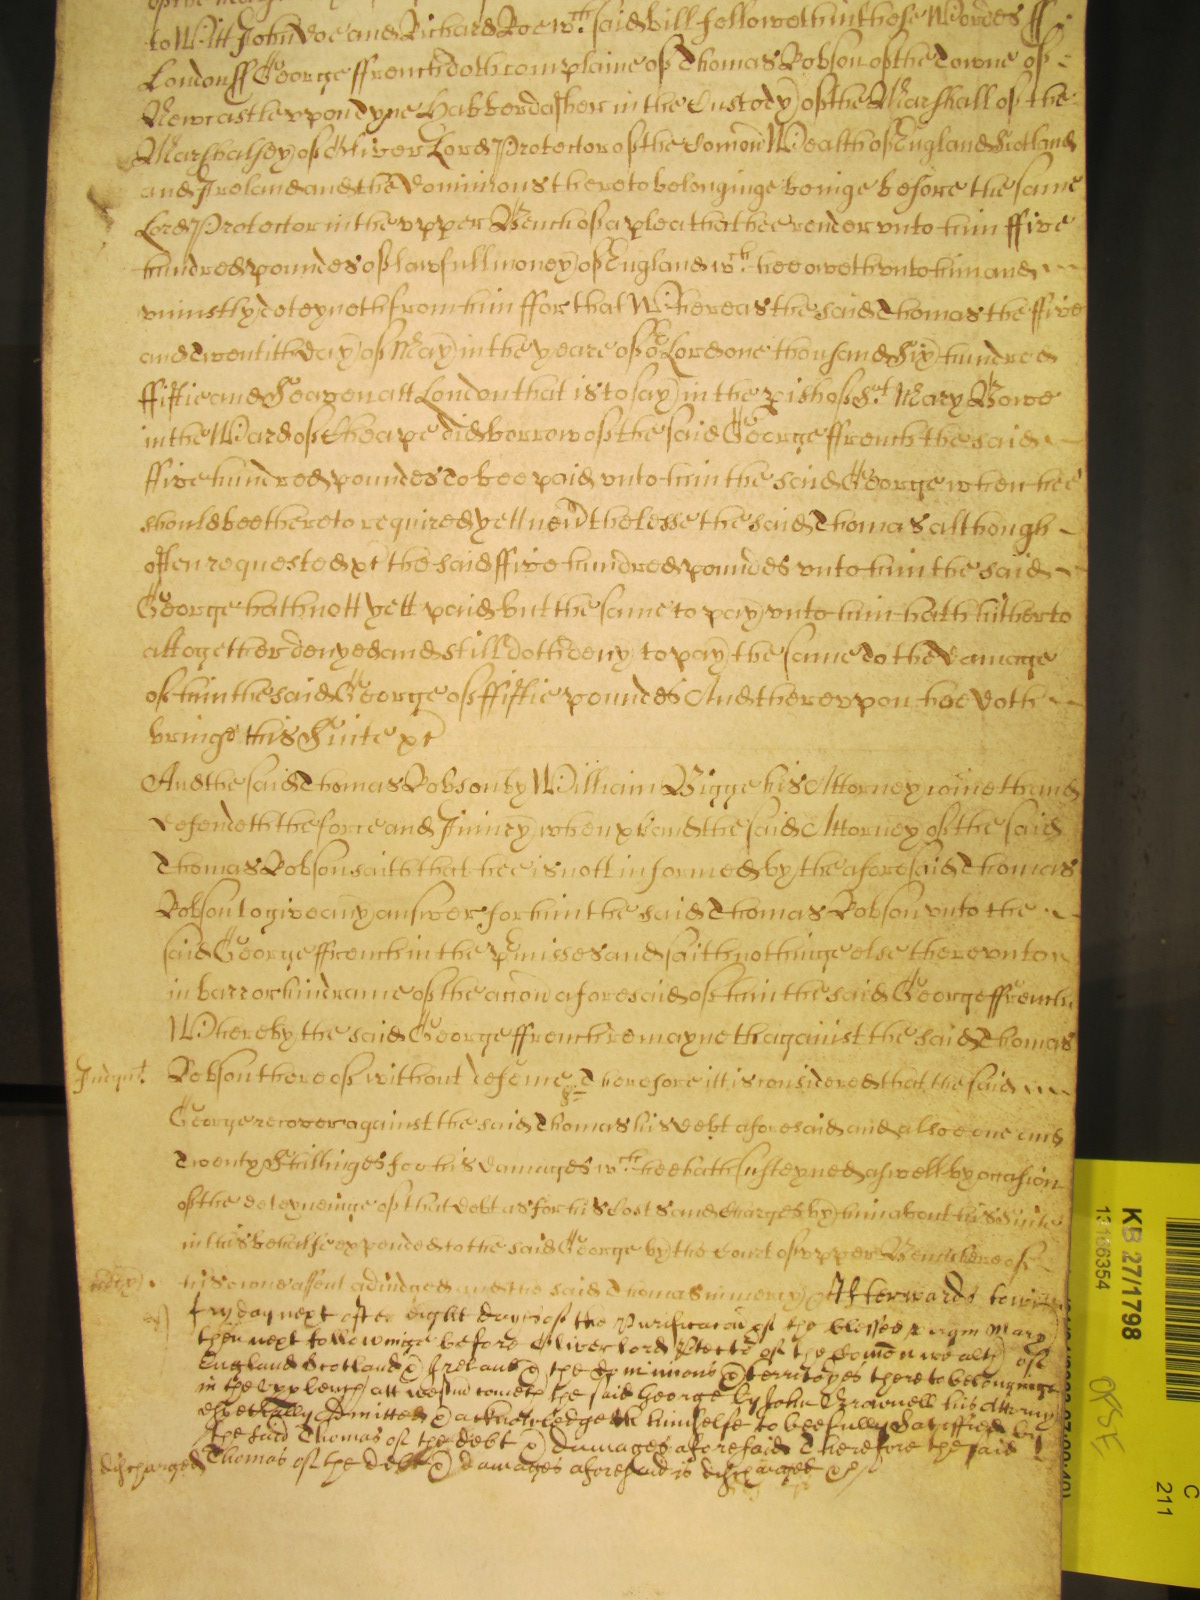 to Witt John Doe and Richard Roe wch said bill followeth in these Wordes ss
London ss George ffrench doth complaine of Thomas Robson of the Towne of
Newcastle vpon Tyne Habberdasher in the Custody of the Marshall of the
Marshalsey of Oliver Lord Protector of the Comon Wealth of England Scotland
and Ireland and the Dominions thereto belonginge beinge before the same
Lord Protector in the vpper Bench of a plea that hee render vnto him ffive
hundred poundes of lawfull money of England wch hee oweth vnto him and
vniustly deteyneth from him ffor that Whereas the said Thomas the ffive
and Twentith day of May in the yeare of or Lord one thousand Six hundred
ffiftie and Seaven att London that is to say in the pish of St Mary Bowe
in the Ward of Cheape did borrow of the said George ffrench the said
ffive hundred poundes to bee paid vnto him the said George when hee
should bee thereto required yett nevthelesse the said Thomas although
often requested &c the said ffive hundred poundes vnto him the said
George hath nott yett paid but the same to pay vnto him hath hitherto
altogether denyed and still doth deny to pay the same To the damage
of him the said George of ffiftie poundes And therevpon hee doth
bringe this Suite &c
And the said Thomas Robson by William Bigge his Attorney cometh and
defendeth the force and Iniury when &c And the said Attorney of the said
Thomas Robson saith that hee is nott informed by the aforesaid Thomas
Robson to give any answer for him the said Thomas Robson vnto the
said George ffrench in the pmisses and saith nothinge else therevnto
in barr or hindrance of the accon aforesaid of him the said George ffrench
Whereby the said George ffrench remayneth against the said Thomas
Judgmt Robson thereof without defence Therefore itt is considered that the said
George recover against the said Thomas his debt aforesaid and alsoe one and
Twenty Shillinges for his damages wch hee hath susteyned aswell by occasion
of the deteyneinge of that debt as for his Costs and charges by him about his Suite
in this behalfe expended to the said George by the Court of vpper Bench here of
mercy his owne assent adiudged and the said Thomas in mercy &c Afterwards to witt
fryday next after eight dayes of the Purificacon of the blessed virgin Mary
then next followinge before Oliver lord Ptector of the Comon wealth of
England Scotland & Ireland & the dominions & territoryes thereto belonginge
in the Vpp bench att Westm cometh the said George by John Brownell his Attorny
especially Admitted & acknowledgeth himselfe to bee fully Satisffied by
the said Thomas of the debt & damages aforesaid Therefore the said
discharged Thomas of the debt & damages aforesaid is discharged &c
KB 27/1798
13166354
C
211